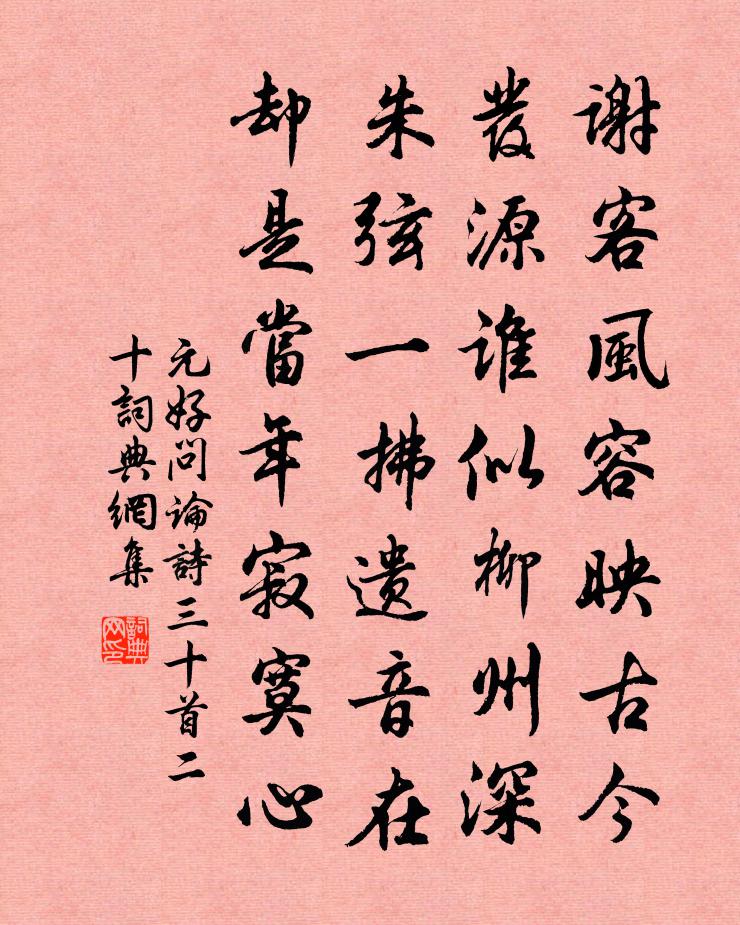 謝客風容映古今
發源誰似柳州深
朱弦一拂遺音在
却是當年寂寞心
元好問論詩三十首二
十詞典網集
詞典網印